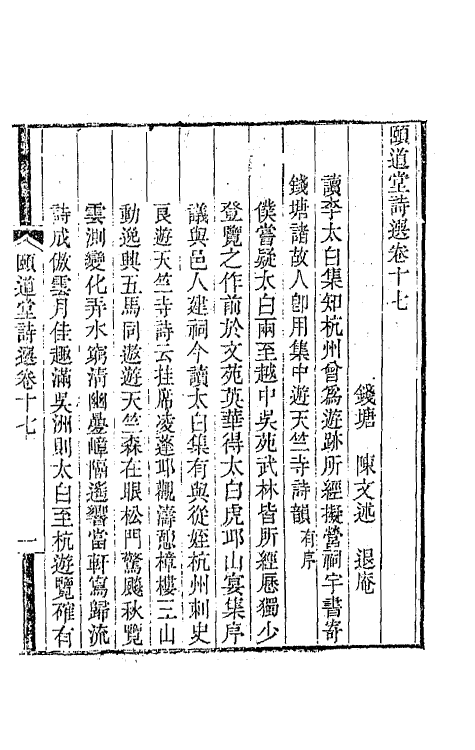 頤道堂詩選卷十七
錢塘　陳文述　退庵
讀李太白集知杭州曾爲遊跡所經擬營祠宇書寄
錢塘諸故人卽用集中遊天竺寺詩韻有序
僕嘗疑太白兩至越中吳苑武林皆所經歷獨少
登覽之作前於文苑英華得太白虎邱山宴集序
議與邑人建祠今讀太白集有與從姪杭州刺史
良遊天竺寺詩云挂席淩蓬邱觀濤憩樟樓三山
動逸興五馬同遨遊天竺森在眼松門驚颷秋覽
雲測變化弄水窮清幽疊嶂隔遙響當軒寫歸流
詩成傲雲月佳趣滿吳洲則太白至杭遊覽確有
頤道堂詩選卷十七
一